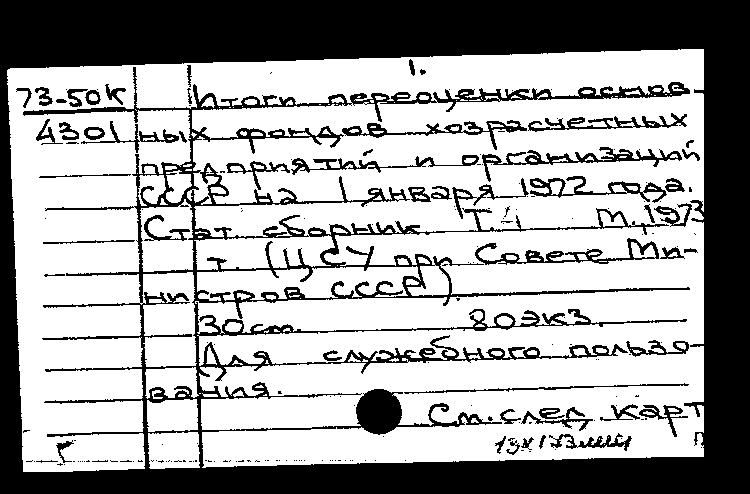 1.
73-50к Итоги переоценки основ-
4301 ных фондов хозрасчетных
предприятий и организаций
СССР на 1 января 1972 года.
Стат. сборник. Т.4 М., 1973
т. (ЦСУ при Совете Ми-
нистров СССР).
30 см. 80 экз.
Для служебного пользо-
вания.
См. след. карт